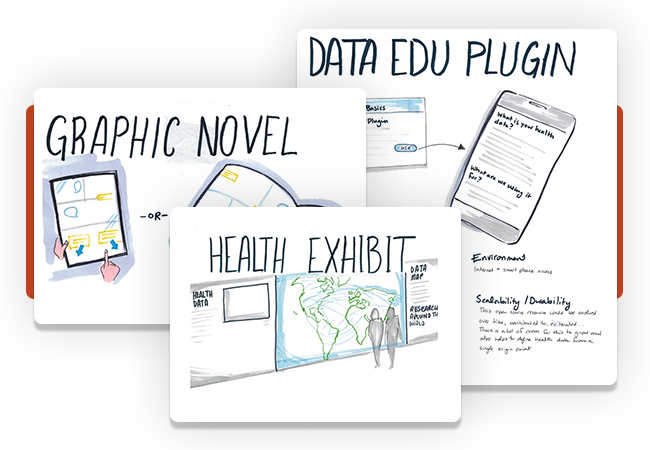 DATA EDU PLUGIN
Basics
Plugin
USE
What is your health
data?
What are we using it
for?
Environment
Internet + smart phone access
Scalability / Durability
This open source resource could be evolved
over time, contributed to, reiterated...
There is a lot of room for this to grow and
also helps to define health data from a
single origin point.
GRAPHIC NOVEL
-OR-
HEALTH EXHIBIT
HEALTH
DATA
DATA
MAP
RESEARCH
AROUND THE
WORLD